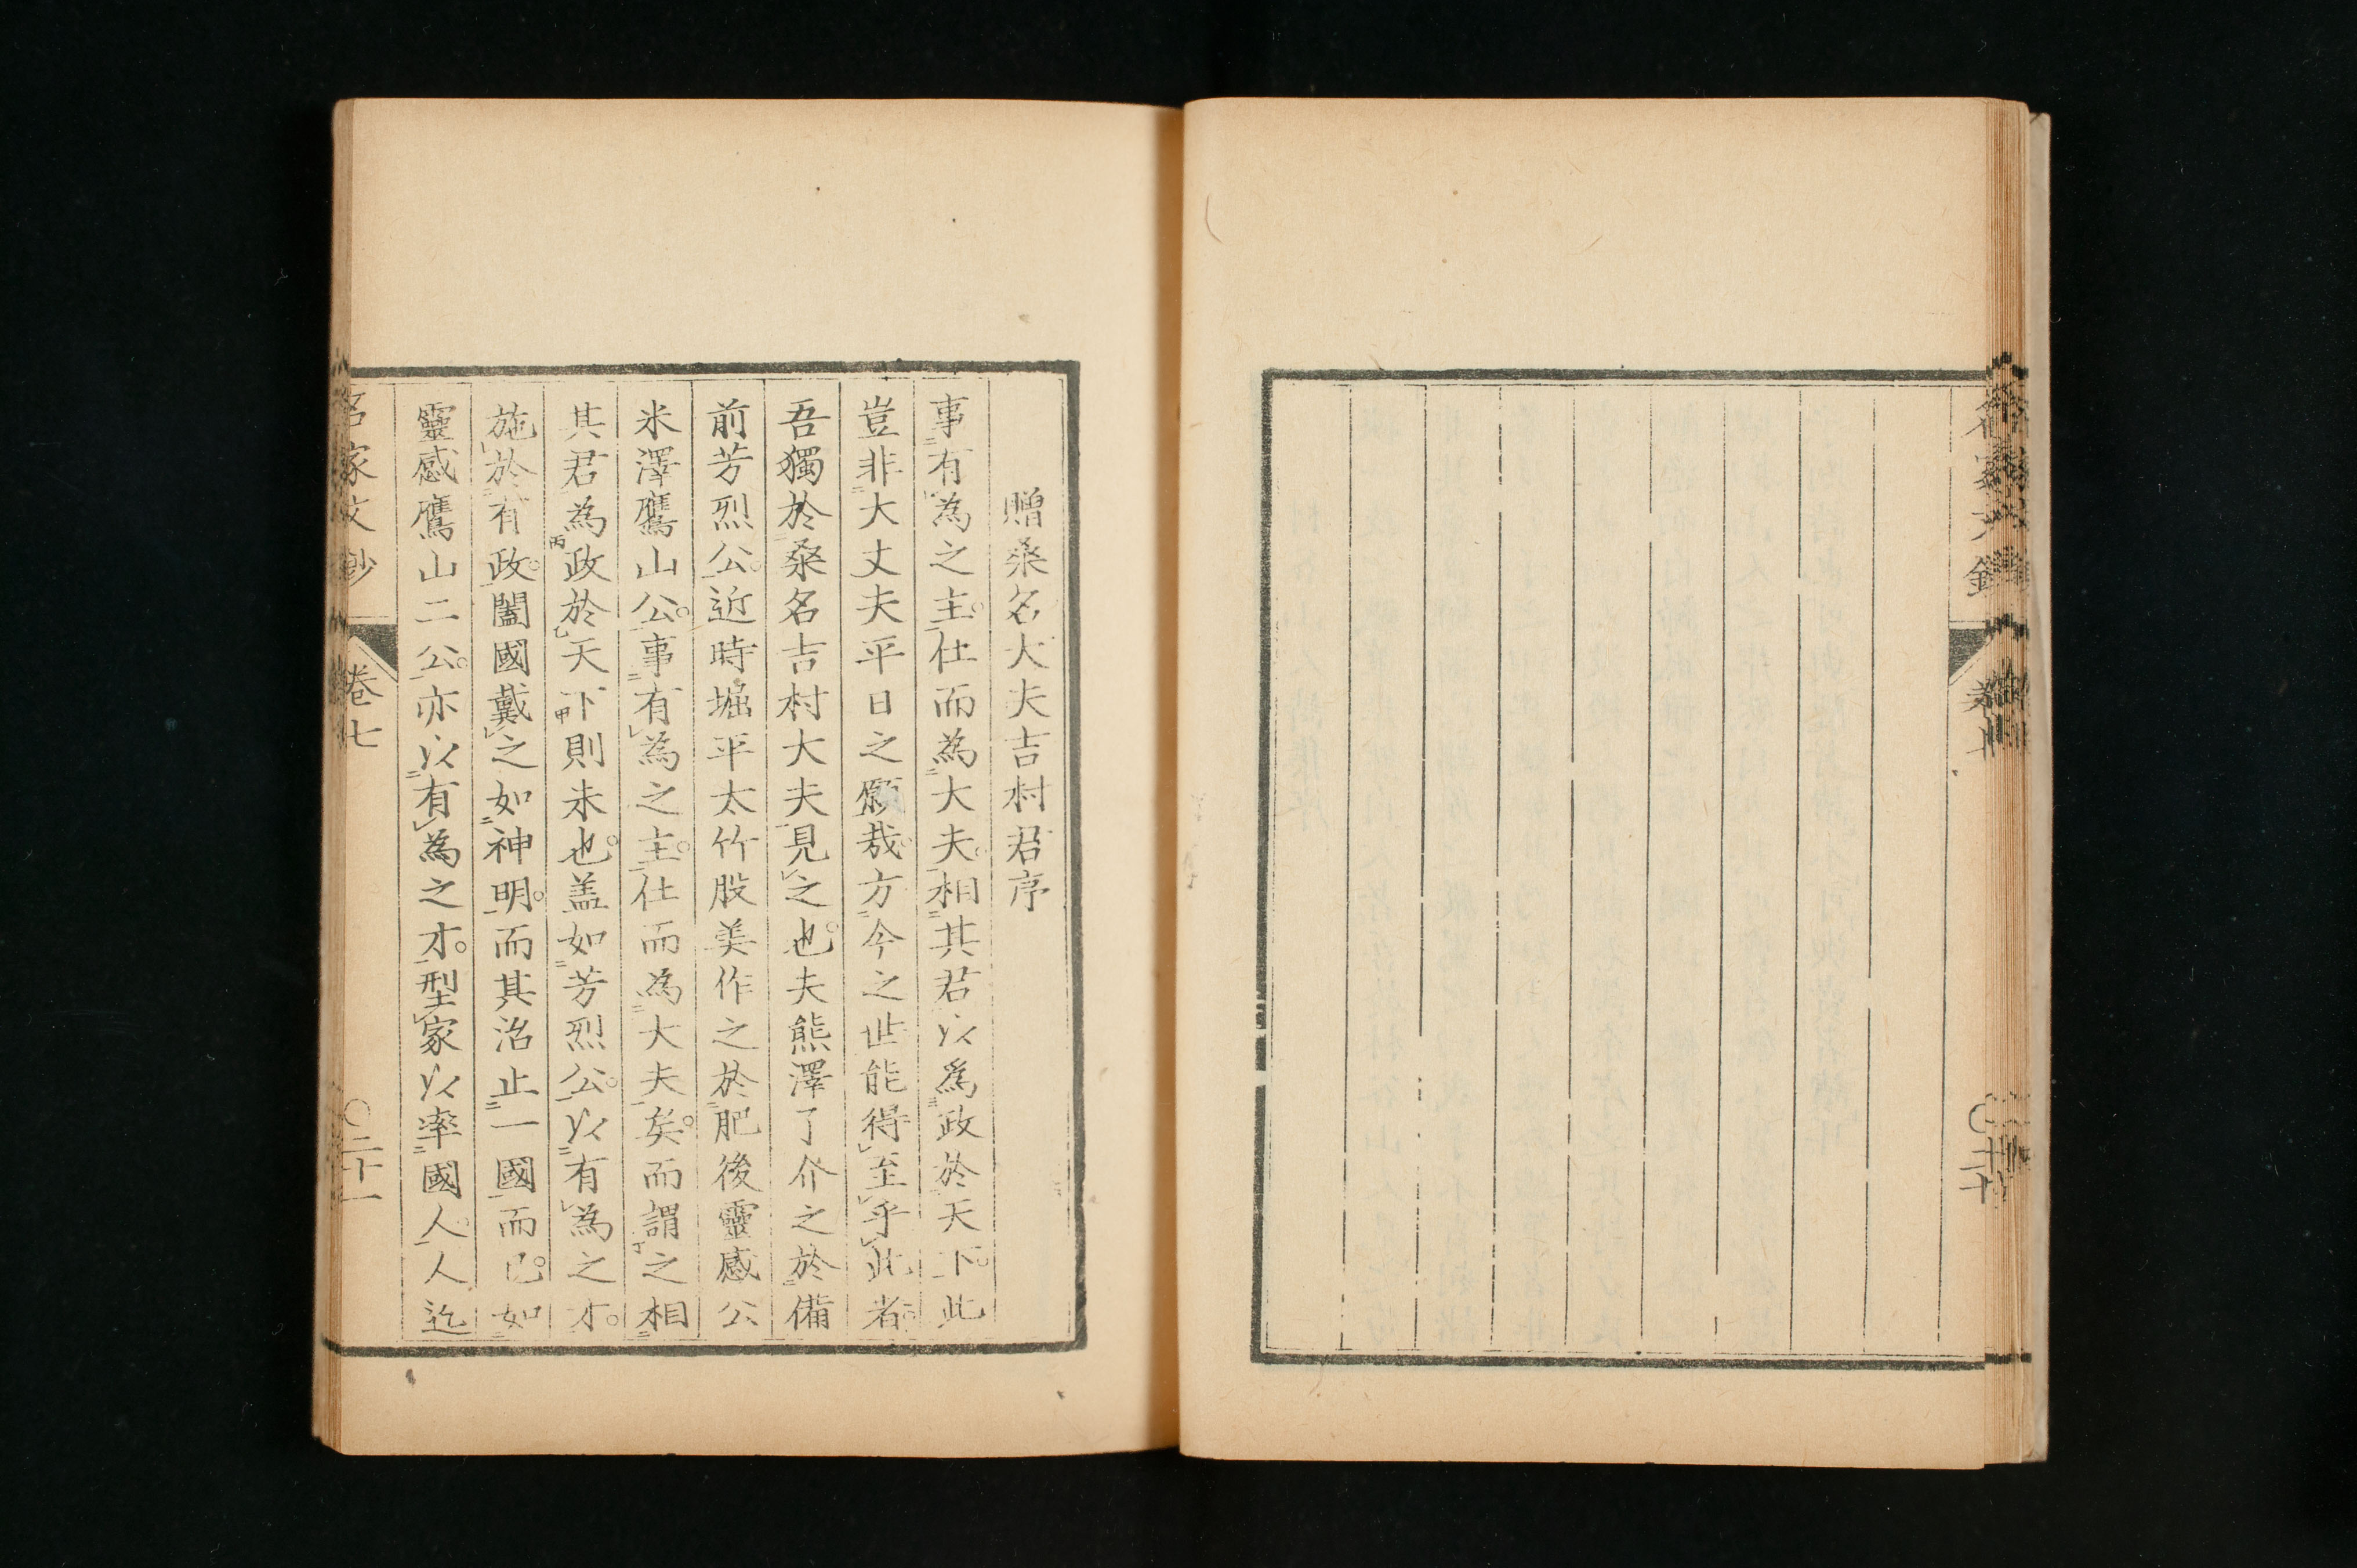 贈桑名大夫吉村君序
事有為之主。仕而為大夫。相其君以為政於天下。此
豈非大丈夫平日之願哉。方今之世能得至乎此者。
吾獨於桑名吉村大夫見之也。夫熊澤了介之於備
前芳烈公。近時堀平太竹股美作之於肥後靈感公
米澤鷹山公。事有為之主。仕而為大夫矣。而謂之相
其君為政於天下則未也。盖如芳烈公。以有為之才。
施於有政。闔國戴之如神明。而其治止一國而已。如
靈感鷹山二公。亦以有為之才。型家以率國人。人迄
名家文鈔 卷七 〇二十一